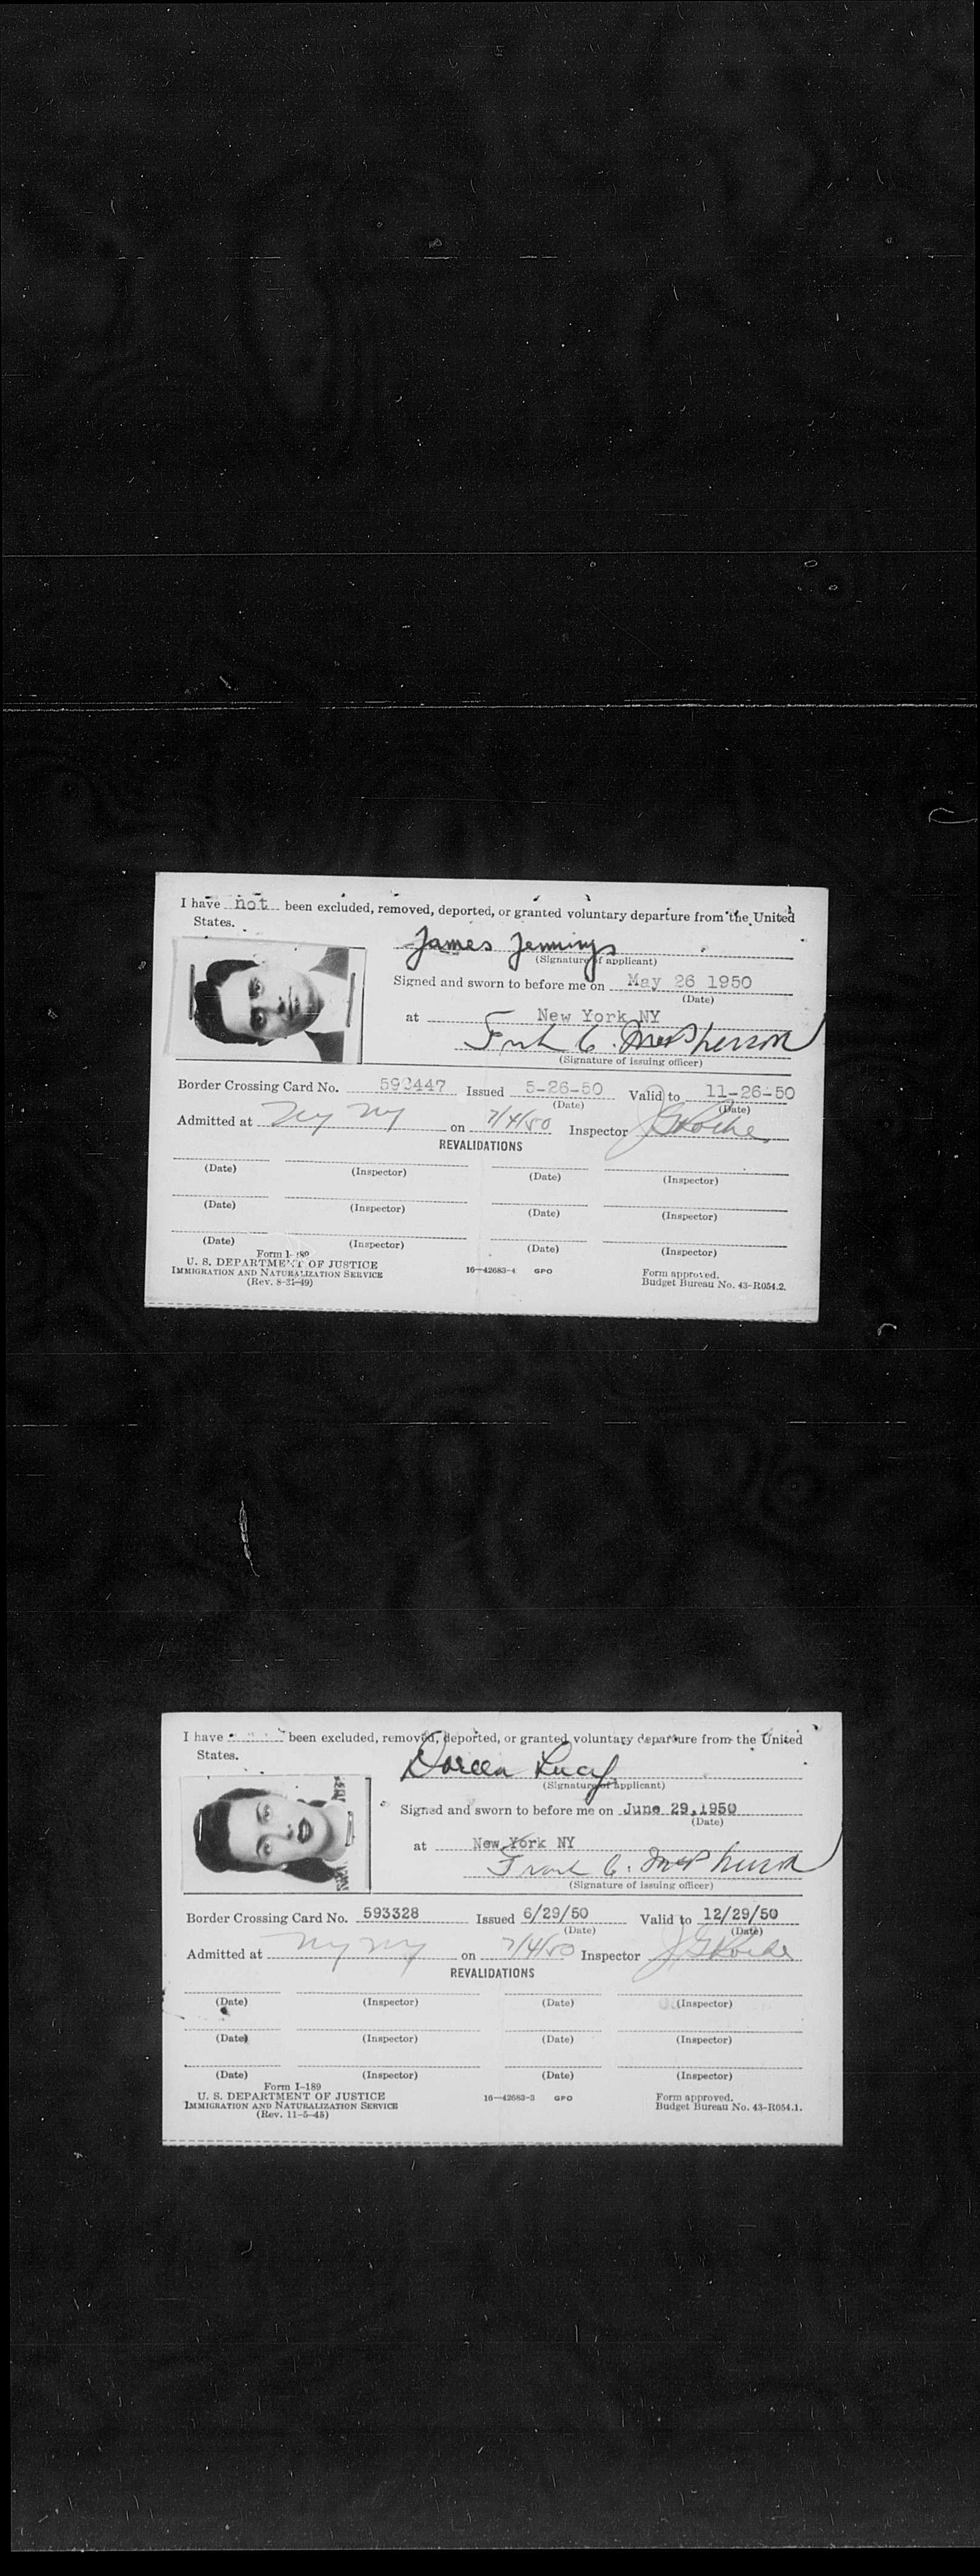 I have not been excluded, removed, deported, or granted voluntary departure from the United
States.
James Jennings
(Signature of applicant)
Signed and sworn to before me on May 26 1950
(Date)
at New York NY
(Signature of issuing officer)
Border Crossing Card No. 592447 Issued 5-26-50 Valid to 11-26-50
(Date) (Date)
Admitted at NY NY on 7/4/50 Inspector
REVALIDATIONS
(Date) (Inspector) (Date) (Inspector)
(Date) (Inspector) (Date) (Inspector)
(Date) (Inspector) (Date) (Inspector)
Form I-189
U. S. DEPARTMENT OF JUSTICE
IMMIGRATION AND NATURALIZATION SERVICE
(Rev. 8-31-49)
16—42683-4 GPO
Form approved.
Budget Bureau No. 43-R054.2.
I have been excluded, removed, deported, or granted voluntary departure from the United
States.
Doreen Lucy
(Signature of applicant)
Signed and sworn to before me on June 29,1950
(Date)
at New York NY
Frank C. McPherson
(Signature of issuing officer)
Border Crossing Card No. 593328 Issued 6/29/50 Valid to 12/29/50
(Date) (Date)
Admitted at NY NY on 7/4/50 Inspector
REVALIDATIONS
(Date) (Inspector) (Date) (Inspector)
(Date) (Inspector) (Date) (Inspector)
(Date) (Inspector) (Date) (Inspector)
Form I-189
U. S. DEPARTMENT OF JUSTICE
IMMIGRATION AND NATURALIZATION SERVICE
(Rev. 11-5-45)
16—42683-3 GPO
Form approved.
Budget Bureau No. 43-R054.1.